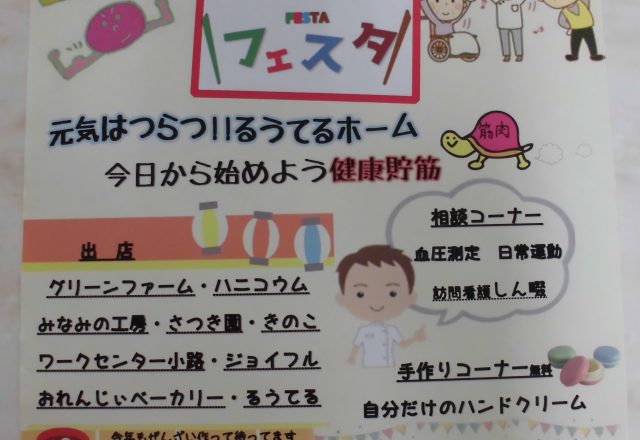 FESTA
フェスタ
元気はつらつ!!るうてるホーム
筋肉
今日から始めよう健康貯筋
出 店
グリーンファーム・ハニコウム
みなみの工房・さつき園・きのこ
ワークセンター小路・ジョイフル
おれんじぃベーカリー・るうてる
今年もぜんざい作って待ってます
相談コーナー
血圧測定 日常運動
訪問看護しん暇
手作りコーナー無料
自分だけのハンドクリーム